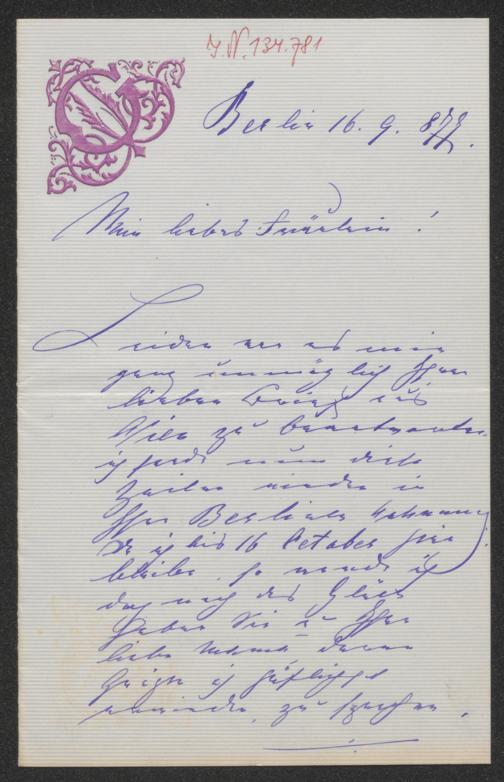 J.N. 134.781
Berlin 16. 9. 877.
Mein liebes Fräulein!
Leider war es mir
ganz unmöglich Ihren
lieben Brief aus
Wien zu beantworten.
ich sende nun diese
Zeilen wieder in
Ihre Berliner Wohnung
Da ich bis 16 October hier
bleibe, so werde ich
doch noch das Glück
haben Sie u Ihre
liebe Mama deren
Grüße ich höflichst
erwiedre, zu sprechen.